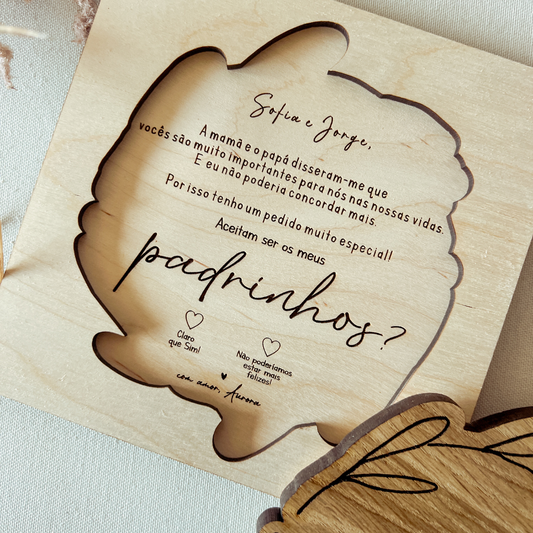 Sofia e Jorge,
A mamã e o papá disseram-me que
vocês são muito importantes para nós nas nossas vidas.
E eu não poderia concordar mais.
Por isso tenho um pedido muito especial!
Aceitam ser os meus
padrinhos?
Claro
que Sim!
Não poderíamos
estar mais
felizes!
com amor, Aurora